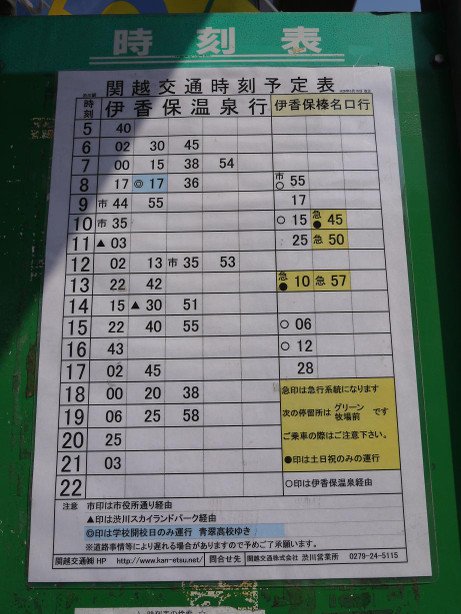 時刻表
関越交通時刻予定表
時刻 伊香保温泉行 伊香保榛名口行
5 40
6 02 30 45
7 00 15 38 54
8 17 ◎17 36 市○55
9 市44 55 17
10 市35 ○15 急●45
11 ▲03 25 急50
12 02 13 市35 53
13 22 42 急●10 急57
14 15 ▲30 51
15 22 40 55 ○06
16 43 ○12
17 02 45 28
18 00 20 38
19 06 25 58
20 25
21 03
22
急印は急行系統になります
次の停留所は グリーン牧場前 です
ご乗車の際はご注意下さい。
●印は土日祝のみの運行
○印は伊香保温泉経由
注意 市印は市役所通り経由
▲印は渋川スカイランドパーク経由
◎印は学校開校日のみ運行 青翠高校ゆき
※道路事情等により遅れる場合がありますので予めご了承願います。
関越交通㈱HP http://www.kan-etsu.net/ 問合せ先 関越交通株式会社 渋川営業所 0279-24-5115